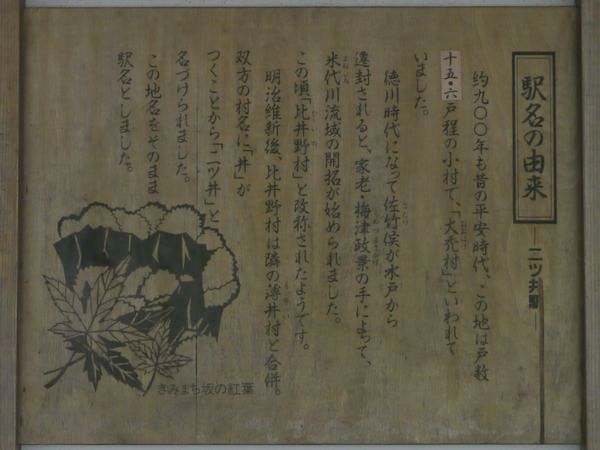 駅名の由来
―二ツ井駅―
約九〇〇年も昔の平安時代、この地は戸数
十五・六戸程の小村で、「大禿村」といわれて
いました。
徳川時代になって佐竹侯が水戸から
遷封されると、家老・梅津政景の手によって、
米代川流域の開拓が始められました。
この頃「比井野村」と改称されたようです。
明治維新後、比井野村は隣の薄井村と合併。
双方の村名に「井」が
つくことから「二ツ井」と
名づけられました。
この地名をそのまま
駅名としました。
きみまち坂の紅葉